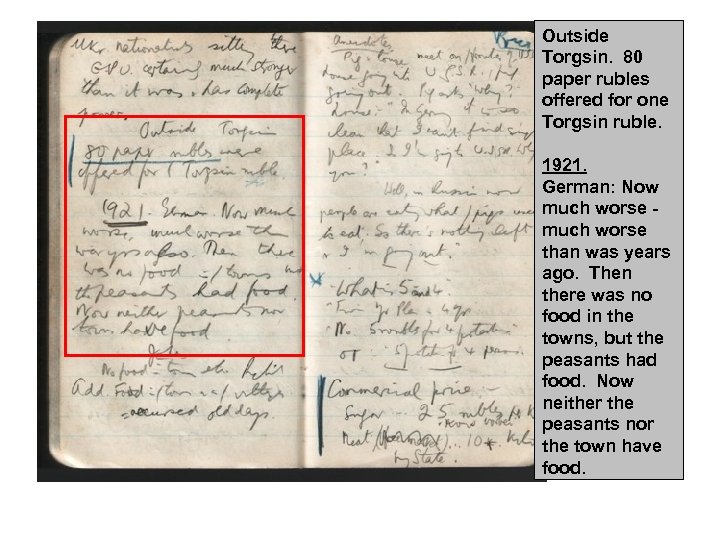 Ukr. nationalists sitting there
G.P.U. certainly much stronger
than it was & has complete
power.
Outside Torgsin
80 paper rubles were
offered for 1 Torgsin ruble.
1921. German. Now much
worse, much worse than
was yrs ago. Then there
was no food in towns but
the peasants had food.
Now neither peasants nor
town have food
No food in town
Add. Food in towns
old days.
Anecdotes
Pig & horse meet on frontier
horse going into U.S.S.R., pig
going out. Pig asks "Why?"
Horse: "In Germany it is so
clean that I can't find
place.
you?"
Well, in Russia now
people are eating what pigs used
to eat. So there's nothing left
& I'm going out."
What is 5 and 4
Five Yr Plan in 4 yrs
No. 5 roubles for 4 potatoes
or
Commercial price
Sugar 25 rubles
Meat
by State.
Outside
Torgsin. 80
paper rubles
offered for one
Torgsin ruble.
1921.
German: Now
much worse -
much worse
than was years
ago. Then
there was no
food in the
towns, but the
peasants had
food. Now
neither the
peasants nor
the town have
food.